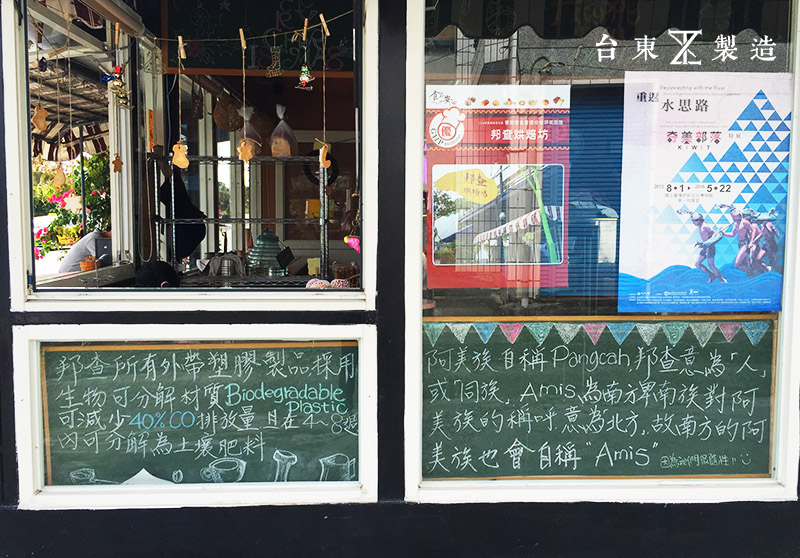 台東製造
邦查烘焙坊
邦查
重返
Reconnecting with the River
水思路
奇美部落
特展
KIWIT
8·1 5·22
邦查所有外帶塑膠製品採用
生物可分解材質Biodegradable Plastic
可減少40%CO排放量且在4~8週
內可分解為土壤肥料
阿美族自稱Pangcah,邦查意為「人」
或「同族」Amis為南方卑南族對阿
美族的稱呼意為北方,故南方的阿
美族也會自稱"Amis"